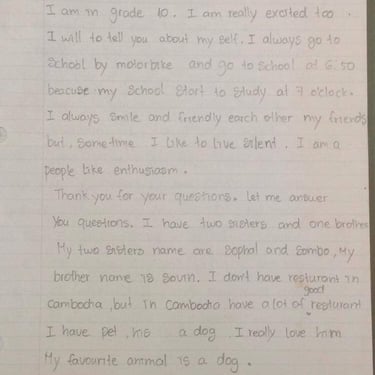 I am in grade 10. I am really excited too.
I will to tell you about my self. I always go to
school by motorbike and go to school at 6:50
beacuse my school start to study at 7 o'clock.
I always smile and friendly earch other my friends
but, sometime I like to live silent. I am a
people like enthusiasm.
Thank you for your questions. let me answer
you questions. I have two sisters and one brother
My two sisters name are Sophal and Sombo, My
brother name is South. I don't have resturant in
good
cambodia, but in Cambodia have a lot of resturant
I have pet, his a dog. I really love him
My favourite animal is a dog.